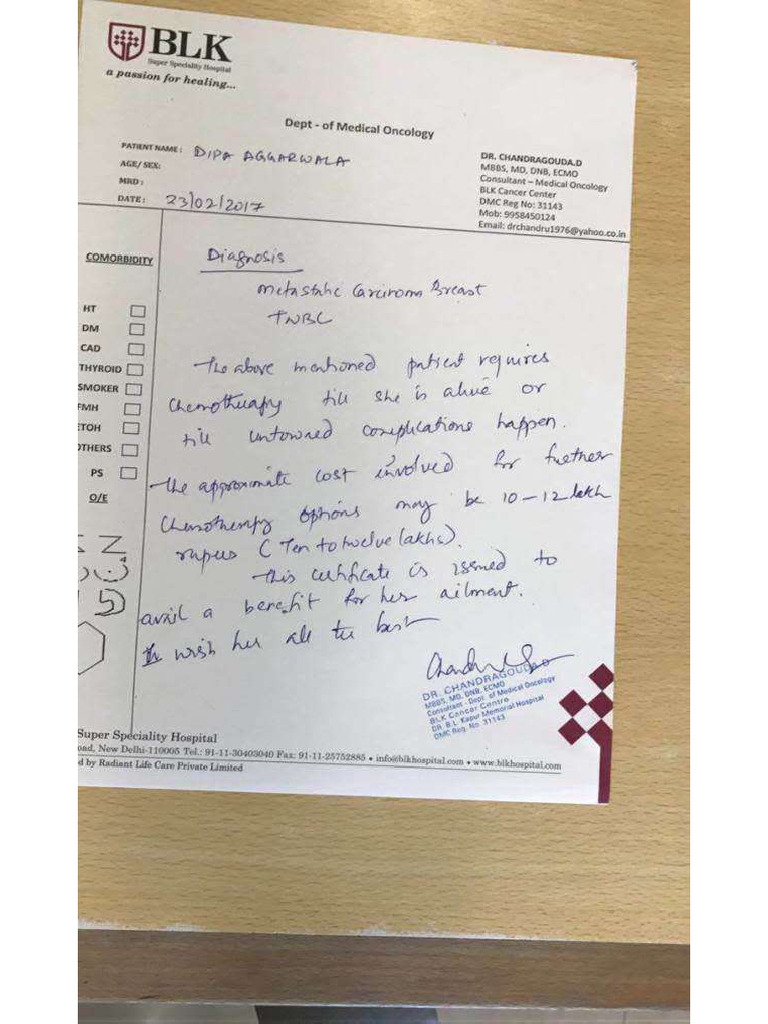 BLK
Super Speciality Hospital
a passion for healing...
Dept - of Medical Oncology
PATIENT NAME : DIPA AGGARWALA
AGE/ SEX:
MRD :
DATE : 23/02/2017
DR. CHANDRAGOUDA.D
MBBS, MD, DNB, ECMO
Consultant – Medical Oncology
BLK Cancer Center
DMC Reg No: 31143
Mob: 9958450124
Email: drchandru1976@yahoo.co.in
COMORBIDITY
HT
DM
CAD
THYROID
SMOKER
FMH
ETOH
OTHERS
PS
O/E
Diagnosis
Metastatic Carcinoma Breast
TNBC
The above mentioned patient requires
Chemotherapy till she is alive or
till untoward complications happen.
The approximate cost involved for further
Chemotherapy options may be 10-12 lakh
rupees ( Ten to twelve lakhs).
This certificate is issued to
avail a benefit for her ailment.
I wish her all the best
DR. CHANDRAGOUDA.D
MBBS, MD, DNB, ECMO
Consultant - Dept. of Medical Oncology
BLK Cancer Centre
DR. B.L. Kapur Memorial Hospital
DMC Reg. No. 31143
Super Speciality Hospital
oad, New Delhi-110005 Tel.: 91-11-30403040 Fax: 91-11-25752885 • info@blkhospital.com • www.blkhospital.com
d by Radiant Life Care Private Limited